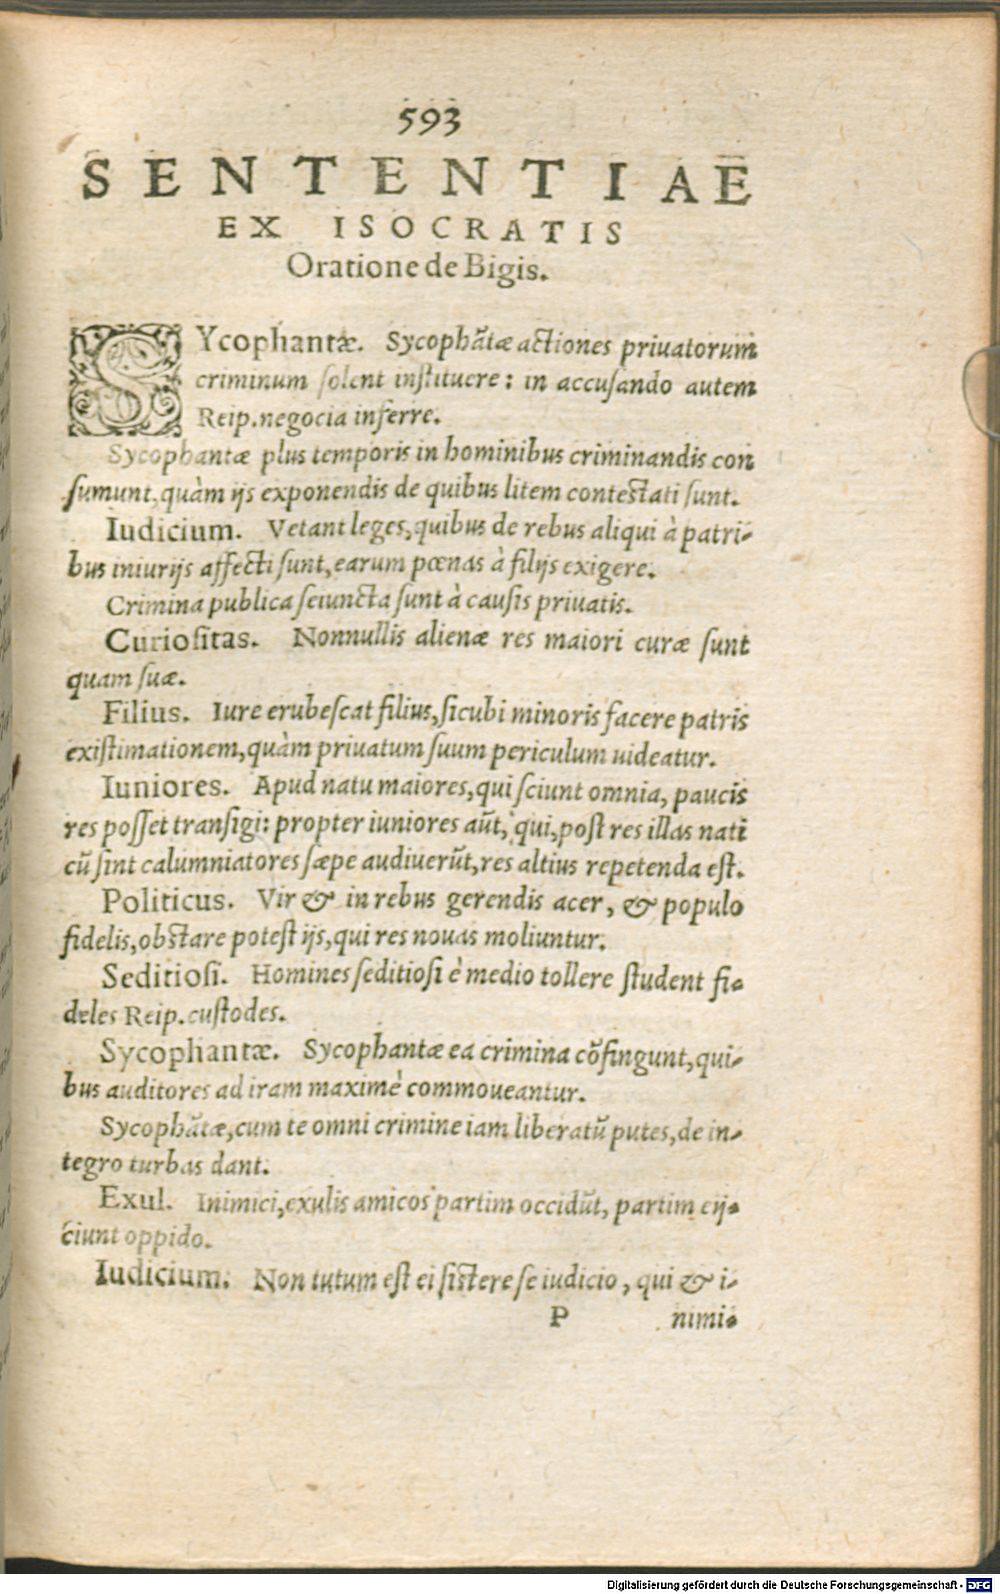 593
SENTENTIAE
EX ISOCRATIS
Oratione de Bigis.
SYcophantæ. Sycophãtæ actiones priuatorum
criminum solent instituere: in accusando autem
Reip. negocia inferre.
Sycophantæ plus temporis in hominibus criminandis con
sumunt, quàm ijs exponendis de quibus litem contestati sunt.
Iudicium. Vetant leges, quibus de rebus aliqui à patri-
bus iniurijs affecti sunt, earum pœnas à filijs exigere.
Crimina publica seiuncta sunt à causis priuatis.
Curiositas. Nonnullis alienæ res maiori curæ sunt
quam suæ.
Filius. Iure erubescat filius, sicubi minoris facere patris
existimationem, quàm priuatum suum periculum uideatur.
Iuniores. Apud natu maiores, qui sciunt omnia, paucis
res posset transigi: propter iuniores aũt, qui, post res illas nati
cũ sint calumniatores sæpe audiuerũt, res altius repetenda est.
Politicus. Vir & in rebus gerendis acer, & populo
fidelis, obstare potest ijs, qui res nouas moliuntur.
Seditiosi. Homines seditiosi è medio tollere student fi-
deles Reip. custodes.
Sycophantæ. Sycophantæ ea crimina cõfingunt, qui-
bus auditores ad iram maximè commoueantur.
Sycophãtæ, cum te omni crimine iam liberatũ putes, de in-
tegro turbas dant.
Exul. Inimici, exulis amicos partim occidũt, partim eij-
ciunt oppido.
Iudicium. Non tutum est ei sistere se iudicio, qui & i-
P nimi-
Digitalisierung gefördert durch die Deutsche Forschungsgemeinschaft - DFG